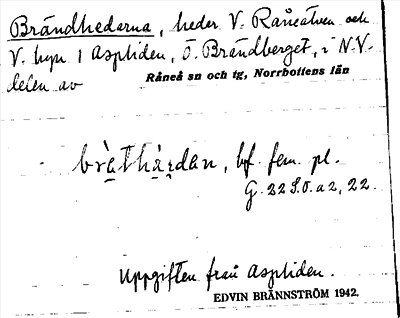 Brändhedarna, heder V. Råneälven och
V. byn 1 Aspliden, Ö. Brändberget, i N.V.
delen av
Råneå sn och tg, Norrbottens län
bf. fem. pl.
G. 22 S.Ö. a 2, 22.
Uppgiften från Aspliden.
EDVIN BRÄNNSTRÖM 1942.